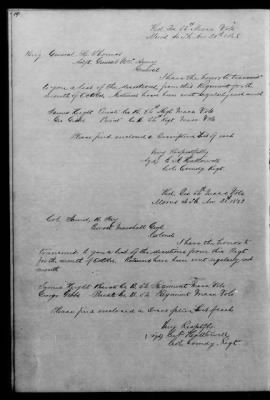 Hd. Qrs 54th Mass Vols
Morris Isl. Nov. 21st 1863
Brig. General L. Thomas
Adjt. General U.S. Army
General
I have the honor to transmit
to you a list of the deserters from this Regiment for the
month of October. Returns have been sent regularly each month
James Knight Private Co. B. 54th Regt Mass Vols
Geo. Gibbs Private Co. B. 54th Regt Mass Vols
Please find enclosed a Descriptive List of each
Very Respectfully
Col. Comdg Regt
Hd. Qrs 54th Mass Vols
Morris Isl. Nov. 21 1863
Col.
Provost Marshall Genl
Colonel
I have the honor to
transmit to you a list of the deserters from this Regt
for the month of October. Returns have been sent regularly each
month
James Knight Private Co. B. 54 Regiment Mass Vols
George Gibbs Private Co. B. 54 Regiment Mass Vols
Please find enclosed a Descriptive List of each
Very Respectfly
Col. Comdg. Regt